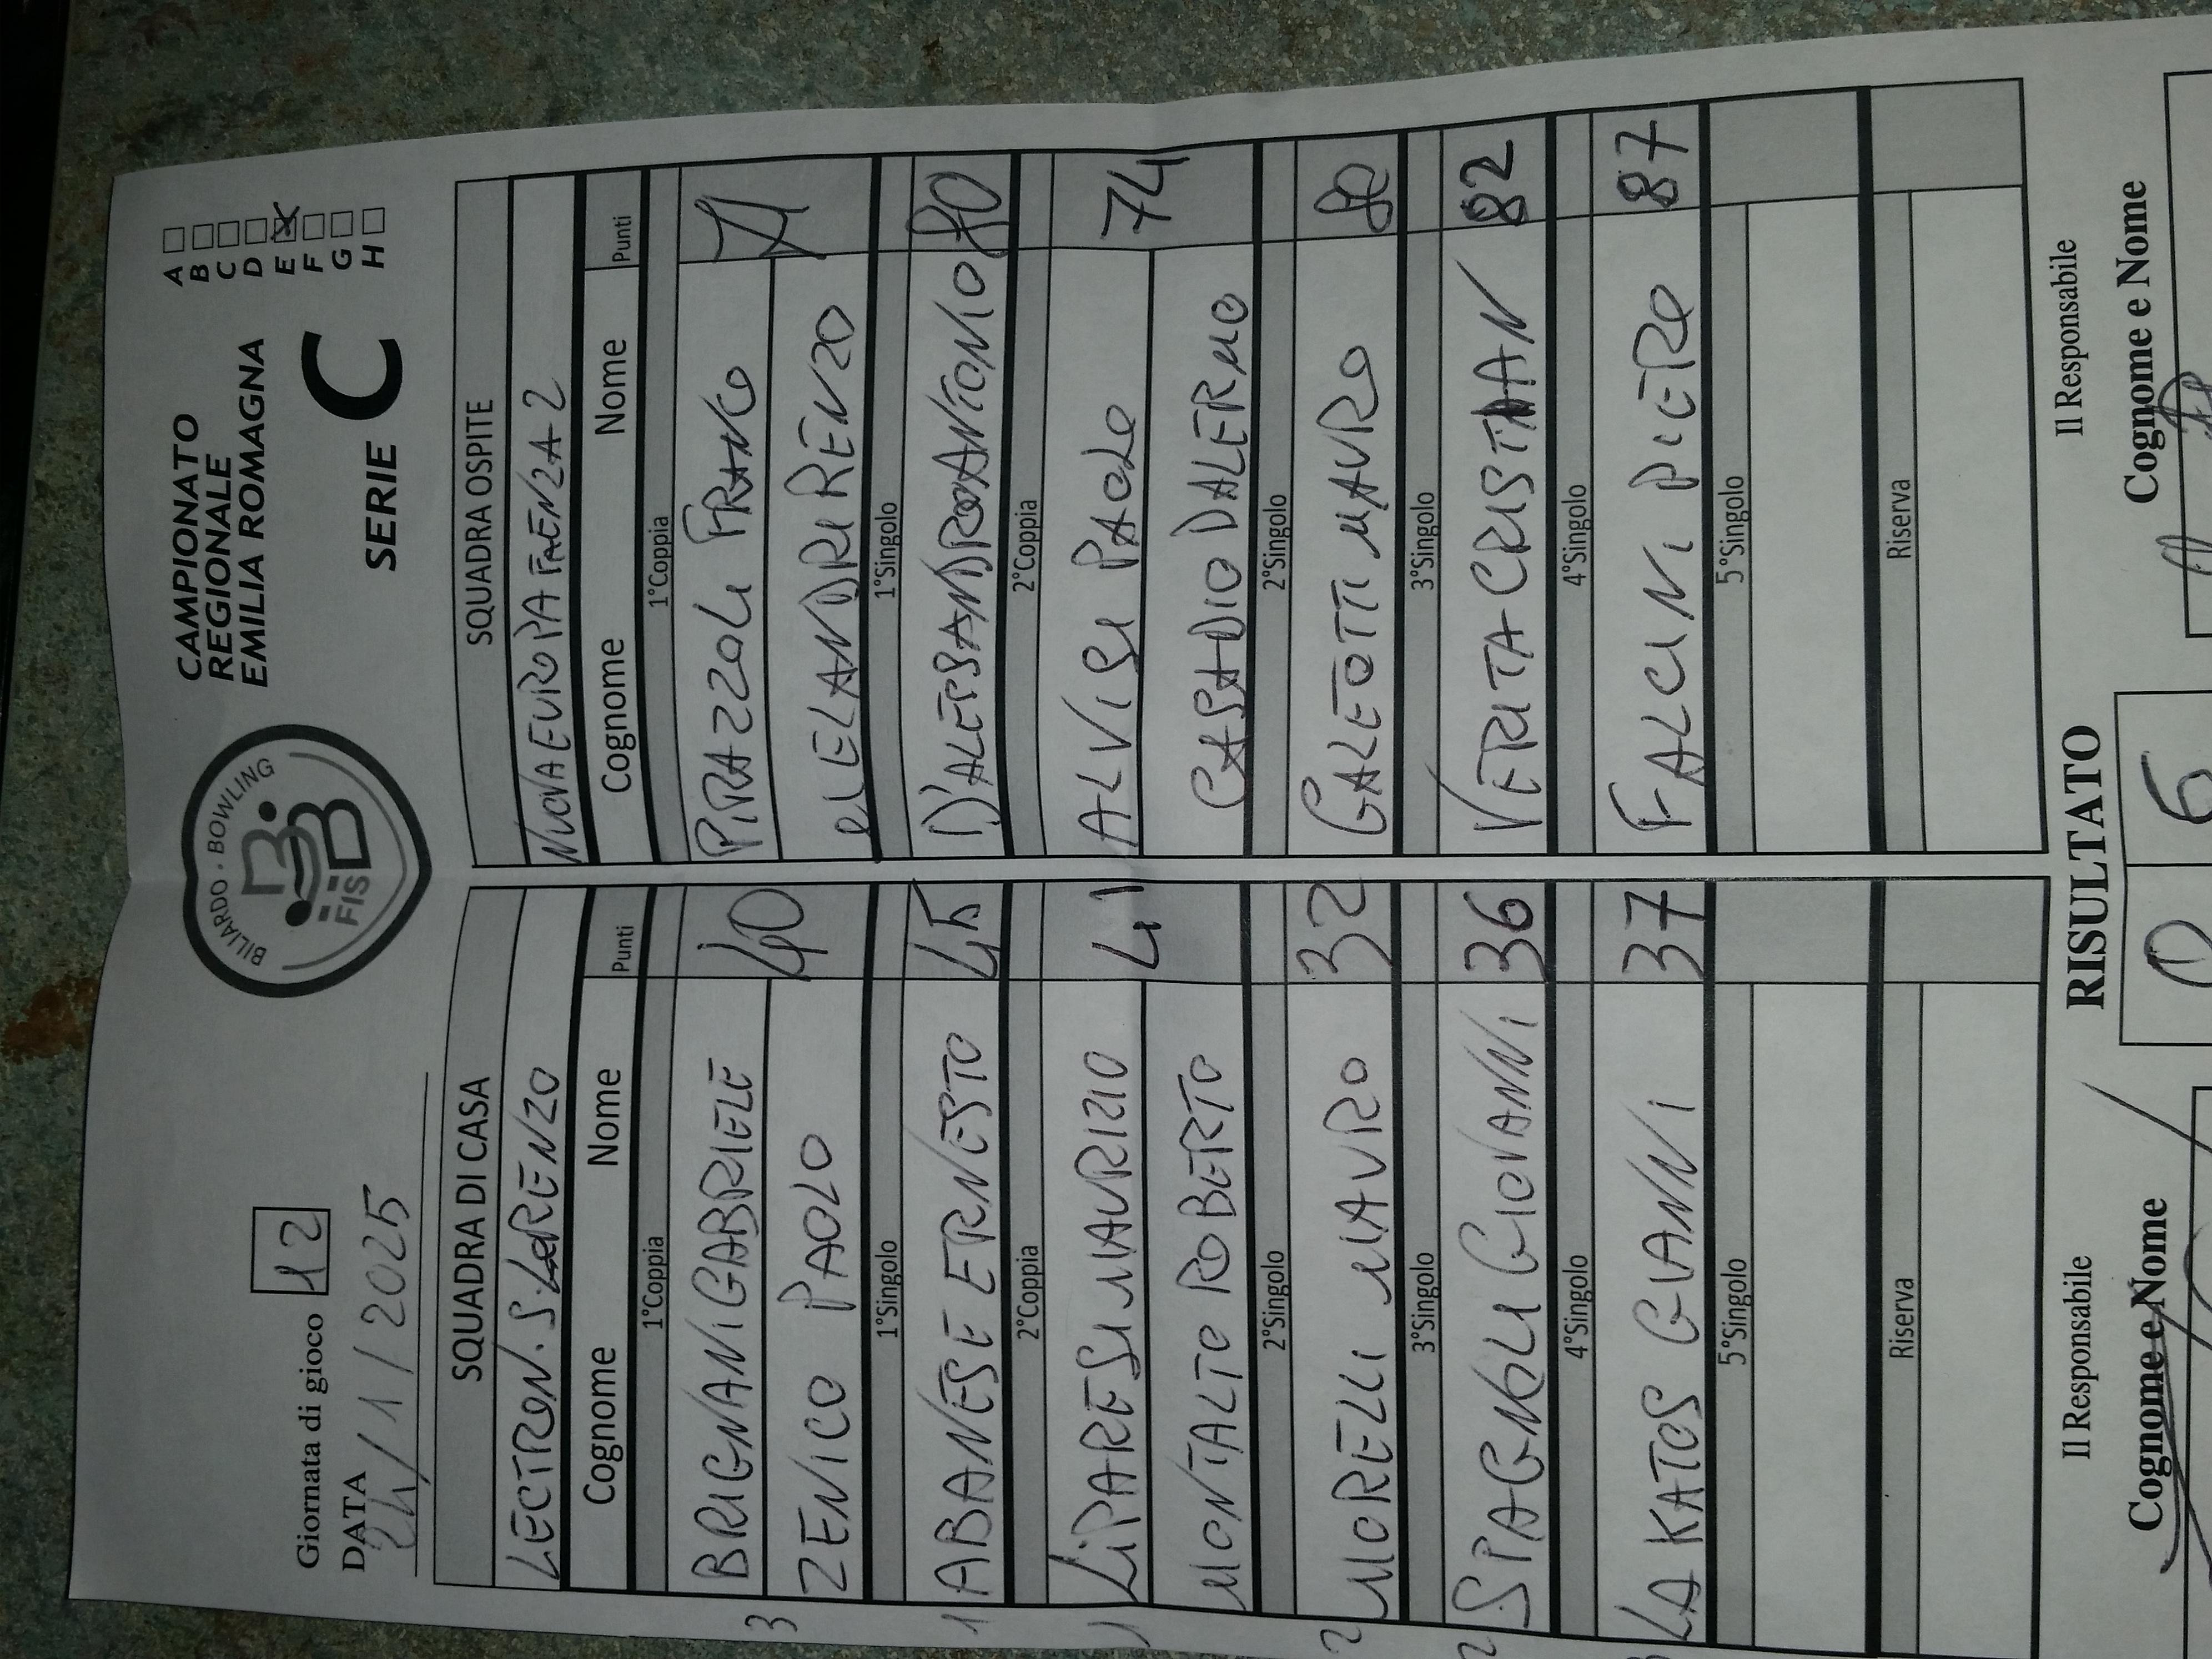 BILIARDO · BOWLING
FISBB
CAMPIONATO
REGIONALE
EMILIA ROMAGNA
SERIE C
A
B
C
D
E X
F
G
H
Giornata di gioco 12
DATA
24/1/2025
SQUADRA DI CASA
LECTRON. S LORENZO
Cognome Nome Punti
1°Coppia
3 BRIGNANI GABRIELE 40
ZENICO PAOLO
1°Singolo
1 ABANESE ERNESTO 45
2°Coppia
1 LIPARESI MAURIZIO 41
MONTALTO ROBERTO
2°Singolo
2 MORELLI MAURO 32
3°Singolo
2 SPAGNOLI GIOVANNI 36
4°Singolo
LAKATOS GIANNI 37
5°Singolo
Riserva
SQUADRA OSPITE
NUOVA EUROPA FAENZA 2
Cognome Nome Punti
1°Coppia
PIRAZZOLI FRANCO 71
MELANDRI RENZO
1°Singolo
D'ALESSANDRO ANTONIO 80
2°Coppia
ALVISI PAOLO 74
CASADIO DALERMO
2°Singolo
GALEOTTI MAURO 80
3°Singolo
VERITA CRISTIAN 82
4°Singolo
FALCINI PIERO 87
5°Singolo
Riserva
Il Responsabile
Cognome e Nome
RISULTATO
0 6
Il Responsabile
Cognome e Nome